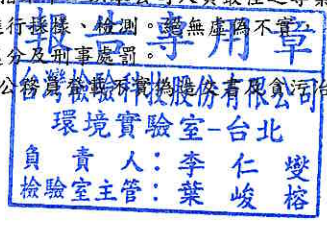 進行採樣、檢測。絕無虛偽不實
區分及刑事處罰。
報告專用章
公務員登載不實偽造文書及貪污治
台灣檢驗科技股份有限公司
環境實驗室-台北
負責人：李仁燮
檢驗室主管：葉峻榕